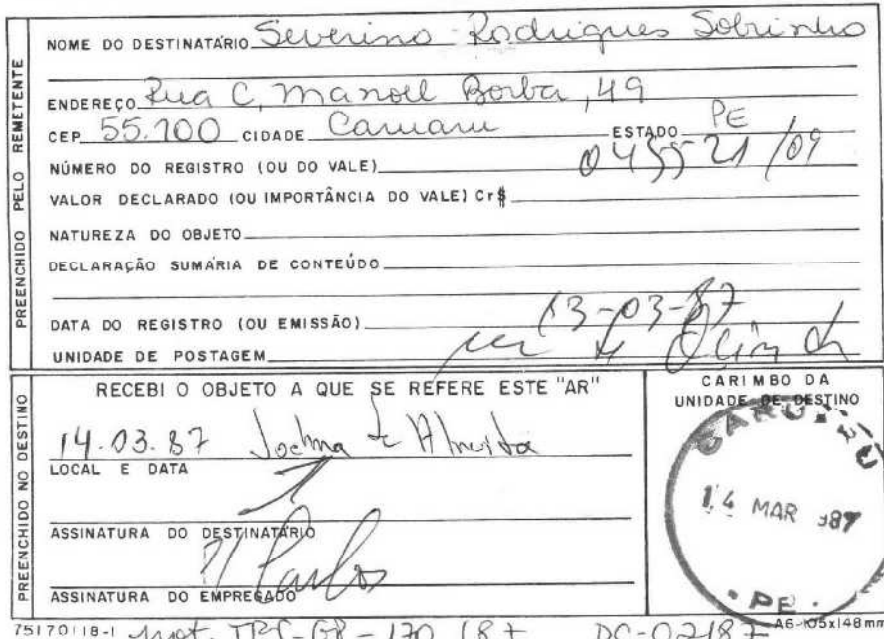 PREENCHIDO PELO REMETENTE
NOME DO DESTINATÁRIO Severino Rodrigues Sobrinho
ENDEREÇO Rua C, Manoel Borba, 49
CEP 55.100 CIDADE Caruaru ESTADO PE
NÚMERO DO REGISTRO (OU DO VALE) 045521/09
VALOR DECLARADO (OU IMPORTÂNCIA DO VALE) Cr$
NATUREZA DO OBJETO
DECLARAÇÃO SUMÁRIA DE CONTEÚDO
DATA DO REGISTRO (OU EMISSÃO) 13-03-87
UNIDADE DE POSTAGEM
PREENCHIDO NO DESTINO
RECEBI O OBJETO A QUE SE REFERE ESTE "AR"
14.03.87 Joelma de Almeida
LOCAL E DATA
ASSINATURA DO DESTINATÁRIO
Carlos
ASSINATURA DO EMPREGADO
CARIMBO DA
UNIDADE DE DESTINO
14 MAR 987
PE
75170118-1 170/87 DC-02187 A6-105x148mm